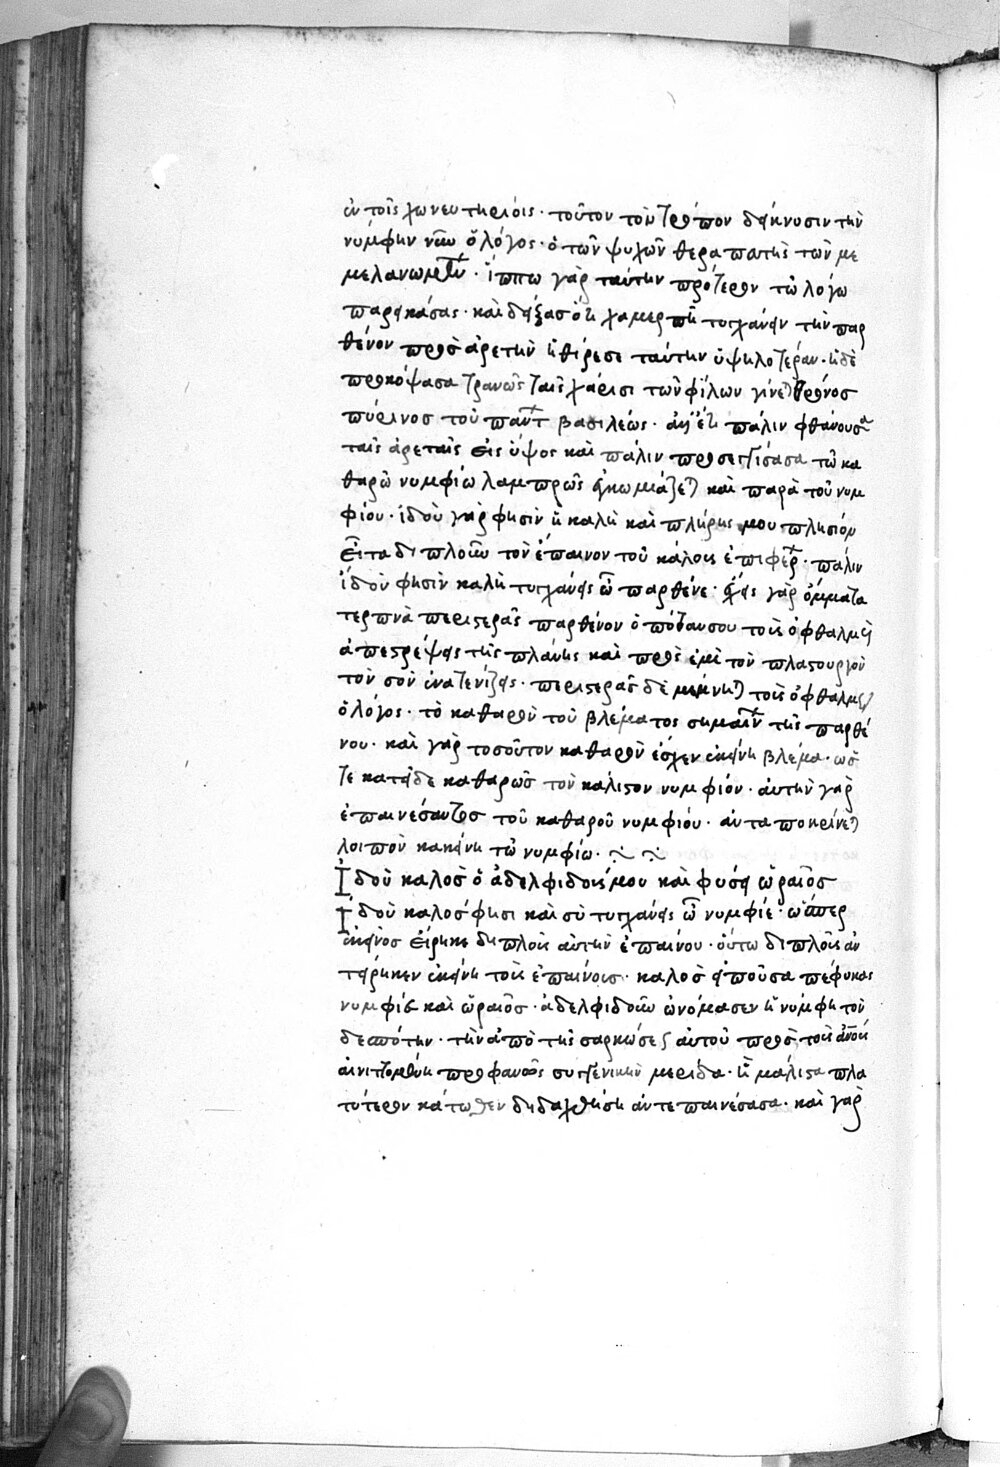 ἐν τοῖς χωνευτηρίοις· τοῦτον τὸν τρόπον δείκνυσιν τὴν
νύμφην νῦν ὁ λόγος· ὁ τῶν ψυχῶν θεραπευτὴς τῶν με
μελανωμένων· ἵππω γὰρ ταύτην πρότερον τῶ λόγω
παρεικάσας· καὶ δείξας ὅτι χαμερπὴ τυγχάνειν τὴν παρ
θένον πρὸς ἀρετὴν ἠθέρεσε ταύτην ὑψηλοτέραν· ἡ δὲ
προκόψασα τρανῶς ταῖς χάρισι τῶν φίλων γίνεται θρόνοσ
πύρινοσ τοῦ παντ βασιλέως· πάλιν φθάνουσα
ταῖς ἀρεταῖς εἰς ὕψος καὶ πάλιν προσεγγίσασα τῶ κα
θαρῶ νυμφίω λαμπρῶς ἐγκωμιάζεται καὶ παρὰ τοῦ νυμ
φίου· ἰδοὺ γὰρ φησὶν ἡ καλὴ καὶ πλήρης μου πλησίον
εἶτα διπλοῦν τὸν ἔπαινον τοῦ κάλους ἐπιφέρει· πάλιν
ἰδοὺ φησὶν καλὴ τυγχάνεις ὦ παρθένε· ἔχεις γὰρ ὄμματα
τερπνὰ περιστερᾶς παρθένον ὁπόταν σου τοὺς ὀφθαλμοὺς
ἀπεστρέψεις τῆς πλάνης καὶ πρὸς ἐμὲ τὸν πλαστουργὸν
τὸν σὸν ἐνατενίζεις· περιστερᾶς δὲ μέμνηται τοὺς ὀφθαλμοὺς
ὁ λόγος· τὸ καθαρὸν τοῦ βλέματος σημαίνων τῆς παρθέ
νου· καὶ γὰρ τοσοῦτον καθαρὸν ἔσχεν ἐκείνη βλέμα· ὡσ
τε κατεῖδε καθαρῶς τὸν κάλιστον νυμφίον· αὐτὴν γὰρ
ἐπαινέσαντος τοῦ καθαροῦ νυμφίου· ἀνταποκρίνεται
λοιπὸν κακείνη τῶ νυμφίω·
Ἰδοὺ καλὸσ ὁ ἀδελφιδοῦς μου καὶ φυσει ὡραῖοσ
Ἰδοὺ καλὸσ φησι καὶ σὺ τυγχάνεις ὦ νυμφίε· ὥσπερ
ἐκεῖνοσ εἴρηκε διπλοῦς αὐτὴν ἐπαίνου· οὕτω διπλοῦς ἀν
τείρηκεν ἐκείνη τοὺς ἐπαίνους· καλὸσ εἰποῦσα πέφυκας
νυμφίε καὶ ὡραῖοσ· ἀδελφιδοῦν ὠνόμασεν ἡ νύμφη τὸν
δεσπότην· τὴν ἀπὸ τῆς σαρκώσεως αὐτοῦ πρὸς τοὺς ἀνους
αἰνιττομένη προφανῶς συγγενικὴν μερίδα· ἢ μάλιστα πλα
τύτερον κάτωθεν διδαχθήση ἀντεπαινέσασα· καὶ γὰρ